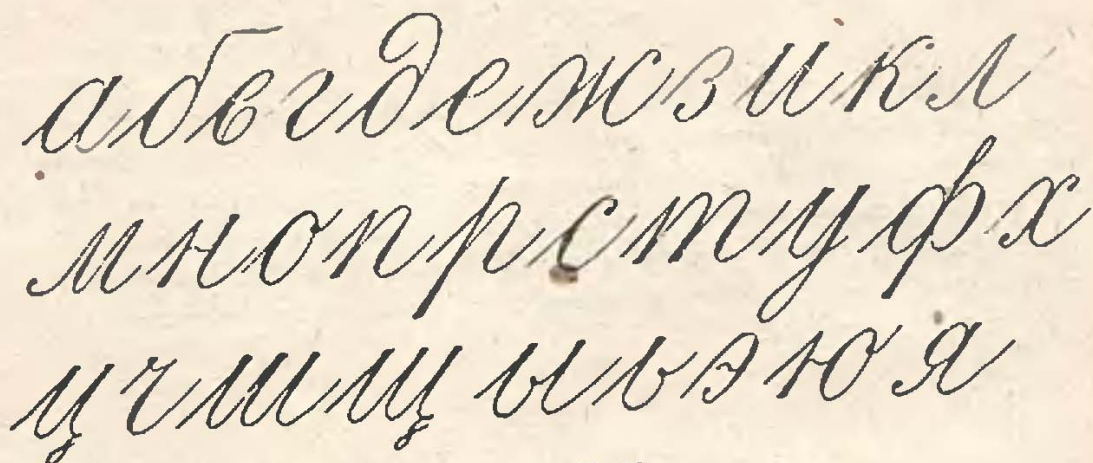 абвгдежзикл
мнопрстуфх
цчшщыьэюя